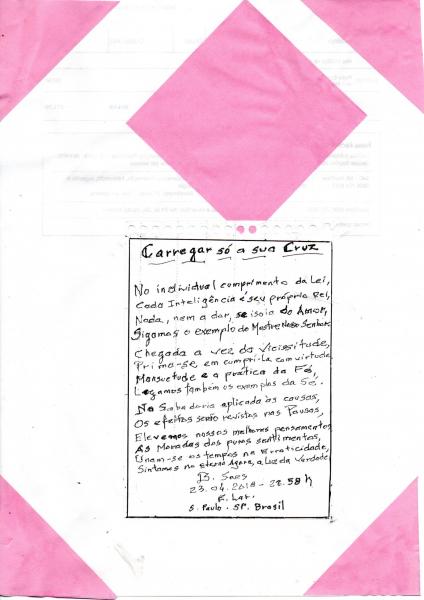 Carregar só a sua Cruz
No individual cumprimento da Lei,
Cada Inteligência é seu próprio Rei,
Nada, nem a dor, se isola do Amor,
Sigamos o exemplo do Mestre Nosso Senhor.
Chegada a vez da Vicissitude,
Prima-se, em cumpri-la com virtude,
Mansuetude é a prática da Fé,
Legamos também os exemplos da Sé.
Na Sabedoria aplicada às causas,
Os efeitos serão revistos nas Pausas,
Elevemos nossos melhores pensamentos,
Às Moradas dos puros sentimentos,
Unam-se os tempos na Erraticidade,
Sintamos no eterno Agora, a Luz da Verdade
B. Saes
23.04.2018 - 22.58 h
E. Lar.
S. Paulo. SP. Brasil